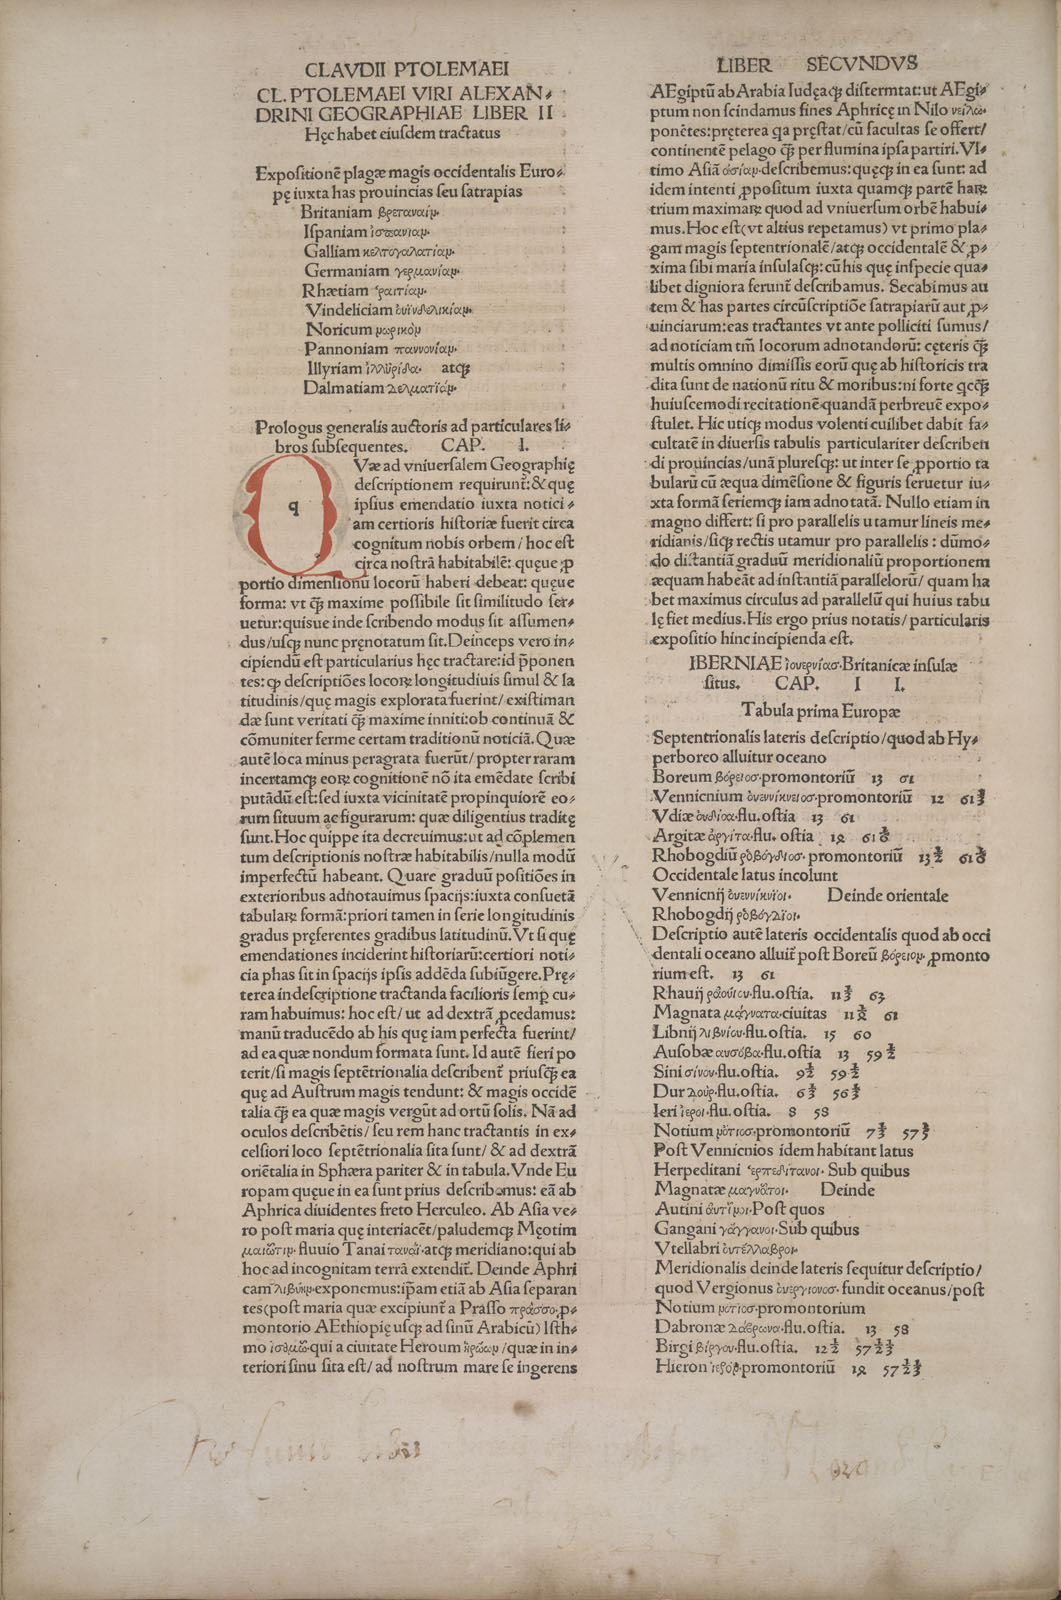 CLAVDII PTOLEMAEI
CL. PTOLEMAEI VIRI ALEXAN⸗
DRINI GEOGRAPHIAE LIBER II
Hęc habet eiusdem tractatus
Expositionē plagæ magis occidentalis Euro⸗
pę iuxta has prouincias seu satrapias
Britaniam βρεταναίμ.
Ispaniam ἰσπανιαμ.
Galliam κελτογαλατίαμ.
Germaniam γερμανίαμ.
Rhætiam ῥαιτίαμ.
Vindeliciam ὀυϊνδελικίαμ.
Noricum νωρικὸμ
Pannoniam παννονίαμ.
Illyriam ἰλλῦρίδα. atq̃
Dalmatiam Δελματἴαμ.
Prologus generalis auctoris ad particulares li⸗
bros subsequentes. CAP. I.
q
QVæ ad vniuersalem Geographię
descriptionem requirunt̄: & quę
ipsius emendatio iuxta notici⸗
am certioris historiæ fuerit circa
cognitum nobis orbem / hoc est
circa nostrā habitabilē: quęue ꝓ
portio dimensionū locorū haberi debeat: quęue
forma: vt q̃ maxime possibile sit similitudo ser⸗
uetur: quisue inde scribendo modus sit assumen⸗
dus/usq̃ nunc prenotatum sit. Deinceps vero in⸗
cipiendū est particularius hęc tractare: id p̄ponen
tes: ꝙ descriptiōes locoꝝ longitudiuis simul & la
titudinis/quę magis explorata fuerint/existiman
dæ sunt veritati q̃ maxime inniti: ob continuā &
cōmuniter ferme certam traditionū noticiā. Quæ
autē loca minus peragrata fuerūt/propter raram
incertamq̃ eoꝝ cognitionē nō ita emēdate scribi
putādū est: sed iuxta vicinitatē propinquiorē eo⸗
rum situum ac figurarum: quæ diligentius traditę
sunt. Hoc quippe ita decreuimus: ut ad cōplemen
tum descriptionis nostræ habitabilis/nulla modū
imperfectū habeant. Quare graduū positiōes in
exterioribus adnotauimus spacijs: iuxta consuetā
tabulaꝝ formā: priori tamen in serie longitudinis
gradus pręferentes gradibus latitudinū. Vt si quę
emendationes inciderint historiarū: certiori noti⸗
cia phas sit in spacijs ipsis addēda subiūgere. Prę⸗
terea in descriptione tractanda facilioris semꝑ cu⸗
ram habuimus: hoc est/ ut ad dextrā ꝓcedamus:
manū traducēdo ab his quę iam perfecta fuerint/
ad ea quæ nondum formata sunt. Id autē fieri po
terit/si magis septētrionalia describent̄ priusq̃ ea
quę ad Austrum magis tendunt: & magis occidē
talia q̃ ea quæ magis vergūt ad ortū solis. Nā ad
oculos describētis/ seu rem hanc tractantis in ex⸗
celsiori loco septētrionalia sita sunt/ & ad dextrā
oriētalia in Sphæra pariter & in tabula. Vnde Eu
ropam quęue in ea sunt prius describemus: eā ab
Aphrica diuidentes freto Herculeo. Ab Asia ve⸗
ro post maria quę interiacēt/paludemq̃ Męotim
μαιῶτιμ. fluuio Tanai ταναϊ. atq̃ meridiano: qui ab
hoc ad incognitam terrā extendit̄. Deinde Aphri
cam λιβύκμ. exponemus: ip̄am etiā ab Asia separan
tes (post maria quæ excipiunt̄ a Prasso πράσσο. ꝓ⸗
montorio AEthiopię usq̃ ad sinū Arabicū) Isth⸗
mo ἰσθμῶ. qui a ciuitate Heroum ἡρώωμ /quæ in in⸗
teriori sinu sita est/ ad nostrum mare se ingerens
LIBER SECVNDVS
AEgiptū ab Arabia Iudęaq̃ distermtat: ut AEgi⸗
ptum non scindamus fines Aphricę in Nilo νείλω.
ponētes: pręterea qa pręstat/cū facultas se offert/
continentē pelago q̃ per flumina ipsa partiri. Vl⸗
timo Asiā ἀσίαμ. describemus: quęq̃ in ea sunt: ad
idem intenti ꝓpositum iuxta quamq̃ partē haꝝ
trium maximaꝝ quod ad vniuersum orbē habui⸗
mus. Hoc est (vt altius repetamus) vt primo pla⸗
gam magis septentrionalē/atq̃ occidentalē & ꝓ⸗
xima sibi maria insulasq̃: cū his quę inspecie qua⸗
libet digniora ferunt̄ describamus. Secabimus au
tem & has partes circūscriptiōe satrapiarū aut ꝓ⸗
uinciarum: eas tractantes vt ante polliciti sumus/
ad noticiam tm̄ locorum adnotandorū: cęteris q̃
multis omnino dimissis eorū quę ab historicis tra
dita sunt de nationū ritu & moribus: ni forte qcq̃
huiuscemodi recitationē quandā perbreuē expo⸗
stulet. Hic utiq̃ modus volenti cuilibet dabit fa⸗
cultatē in diuersis tabulis particulariter describen
di prouincias/unā pluresq̃: ut inter se ꝓportio ta
bularū cū æqua dimēsione & figuris seruetur iu⸗
xta formā seriemq̃ iam adnotatā. Nullo etiam in
magno differt: si pro parallelis utamur lineis me⸗
ridianis/siq̃ rectis utamur pro parallelis: dūmo⸗
do distantiā graduū meridionaliū proportionem
æquam habeāt ad instantiā parallelorū/ quam ha
bet maximus circulus ad parallelū qui huius tabu
lę fiet medius. His ergo prius notatis/ particularis
expositio hinc incipienda est.
IBERNIAE ἰουερνίασ. Britanicæ insulæ
situs. CAP. I I.
Tabula prima Europæ
Septentrionalis lateris descriptio/quod ab Hy⸗
perboreo alluitur oceano
Boreum βόρειοσ. promontoriū 13 61
Vennicnium ὀυεννίκνειοσ. promontoriū 12 61⅓
Vdiæ ὀυδίαα. flu. ostia 13 61
Argitæ ἀργίτα. flu. ostia 14 61
Rhobogdiū ῥοβόγδιοσ. promontoriū 13 ½ 61
Occidentale latus incolunt
Vennicnij ὀυεννίκνϊοι. Deinde orientale
Rhobogdij ῥοβόγΔϊοι.
Descriptio autē lateris occidentalis quod ab occi
dentali oceano alluit̄ post Boreū βόρειομ. ꝓmonto
rium est. 13 61
Rhauij ῥαόυίου. flu. ostia. 11⅓ 63
Magnata μάγνατα. ciuitas 11 61
Libnij λιβνίου. flu. ostia. 15 60
Ausobæ αυσόβα. flu. ostia 13 59 ½
Sini σίνου. flu. ostia. 9½ 59 ½
Dur Δούρ. flu. ostia. 6 56
Ieri ἰεροι. flu. ostia. 8 58
Notium νότιοσ. promontoriū 7 57
Post Vennicnios idem habitant latus
Herpeditani ἑρπεδίτανοι. Sub quibus
Magnatæ μαγνᾶτοι. Deinde
Autini ἀυτῖνοι. Post quos
Gangani γάγγανοι. Sub quibus
Vtellabri ὀυτέλλαβροι.
Meridionalis deinde lateris sequitur descriptio/
quod Vergionus ὀυεργιονοσ. fundit oceanus/post
Notium νοτιοσ. promontorium
Dabronæ Δάβρωνα. flu. ostia. 13 58
Birgi βίργου. flu. ostia. 12 ½ 57
Hieron ἱερόν. promontoriū 14 57